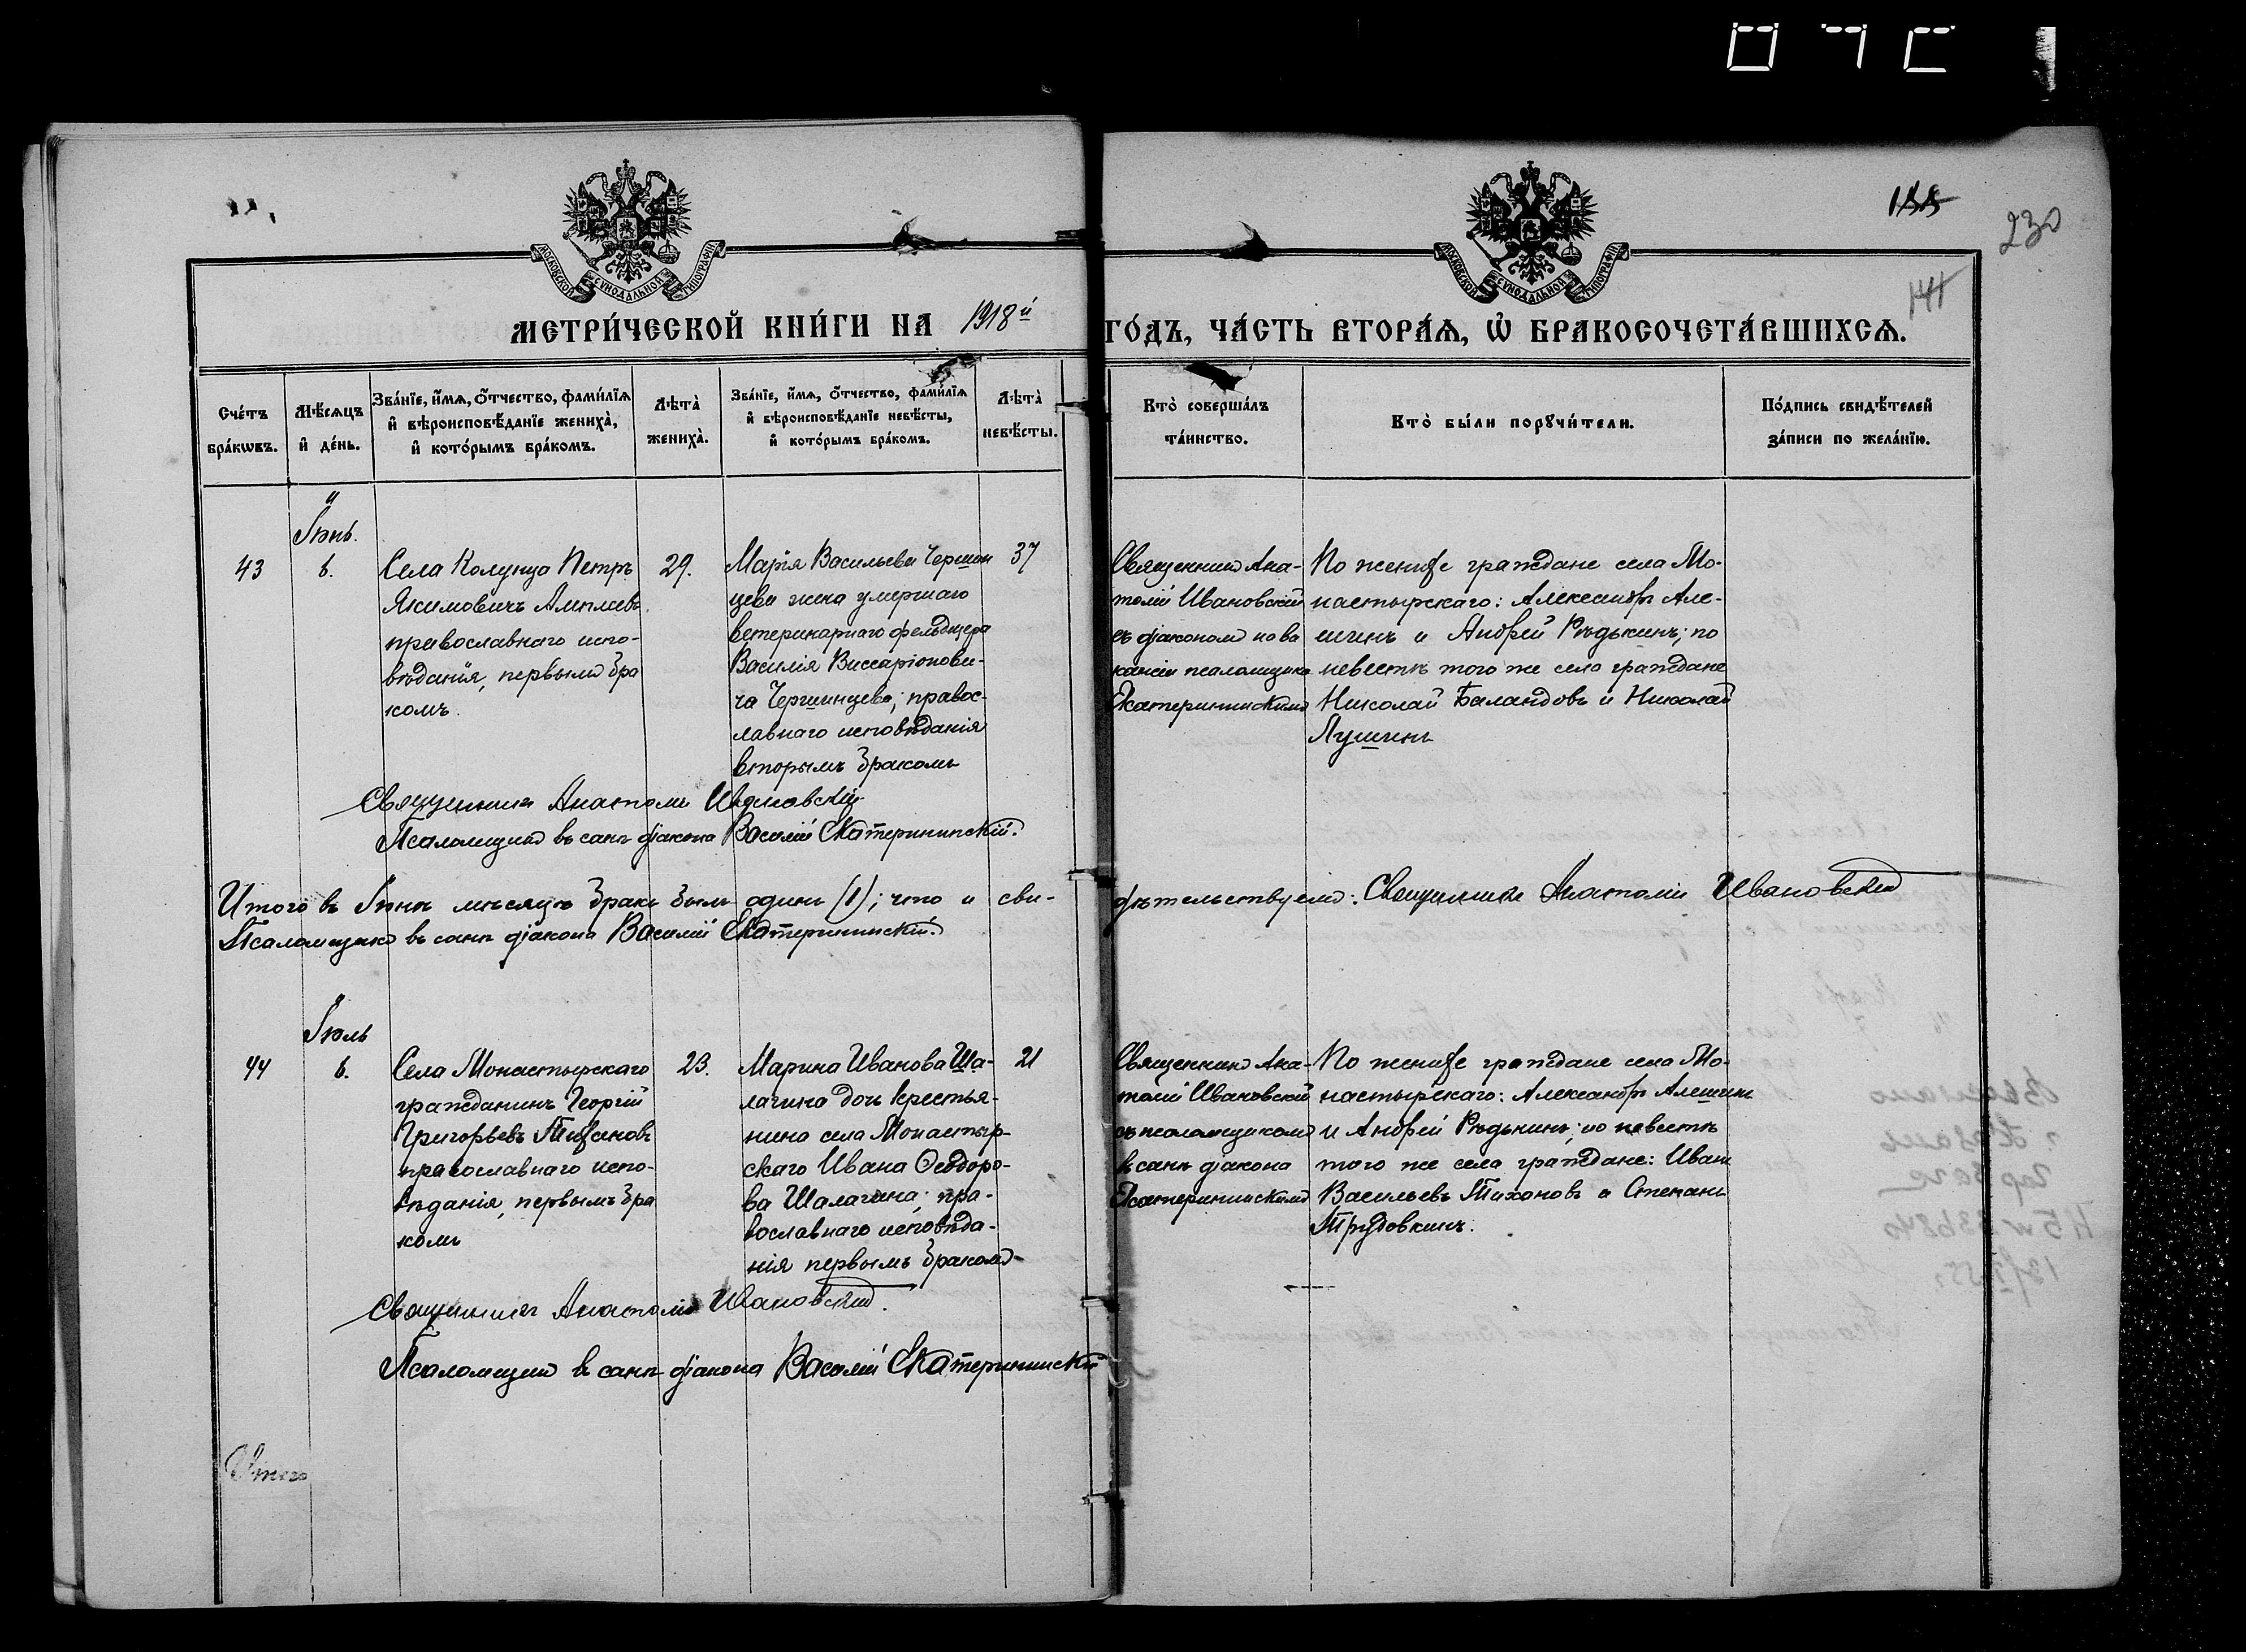 155
230
141
МОСКОВСКОЙ СУНОДАЛЬНОЙ ТИПОГРАФІИ
МОСКОВСКОЙ СУНОДАЛЬНОЙ ТИПОГРАФІИ
МЕТРИ́ЧЕСКОЙ КНИ́ГИ НА 1918й ГО́ДЪ, ЧА́СТЬ ВТОРА́Ѧ, Ѡ҆ БРАКОСОЧЕТА́ВШИХСѦ.
Сче́тъ
бра́кωвъ.
Мѣ́сѧцъ
и҆ де́нь.
Зва́нїе, и҆́мѧ, о҆́тчество, фами́лїѧ
и҆ вѣроисповѣ́данїе жениха̀,
и҆ кото́рымъ бра́комъ.
Лѣта̀
жениха̀.
Зва́нїе, и҆́мѧ, о҆́тчество, фами́лїѧ
и҆ вѣроисповѣ́данїе невѣ́сты,
и҆ кото́рымъ бра́комъ.
Лѣта̀
невѣ́сты.
Кто̀ соверша́лъ
та́инство.
Кто̀ бы́ли порꙋчи́тели.
По́дпись свидѣ́телей
за́писи по жела́нїю.
Іюнь.
43
6.
Села Колунца Петръ
Якимовичъ Амплеевъ
православнаго испо-
вѣданія, первымъ бра
комъ.
29.
Марія Васильева Чершин
цева жена умершаго
ветеринарнаго фельдшера
Василія Виссаріонови-
ча Чершинцева; правос-
лавнаго исповѣданія
вторымъ бракомъ
37
Священникъ Ана-
толій Ивановскій
съ діакономъ на ва
кансіи псаломщика
Екатерининскимъ
По женихе граждане села Мо-
настырскаго: Александръ Але-
шинъ и Андрей Рѣдькинъ; по
невестѣ того же села граждане
Николай Баландовъ и Николай
Лушинъ
Священникъ Анатолій Ивановскій
Псаломщикъ въ санѣ діакона Василій Екатерининскій.
Итого въ Іюнѣ мѣсяцѣ бракъ былъ одинъ (1); что и сви-
дѣтельствуемъ: Священникъ Анатолій Ивановскій
Псаломщикъ въ санѣ діакона Василій Екатерининскій.
Іюль
44
6.
Села Монастырскаго
гражданинъ Георгій
Григорьевъ Тихановъ
православнаго испо-
вѣданія, первымъ бра
комъ
23.
Марина Иванова Ша-
лагина дочь крестья-
нина села Монастыр-
скаго Ивана Ѳеодоро-
ва Шалагина; пра-
вославнаго исповѣда-
нія первымъ бракомъ
21
Священникъ Ана-
толій Ивановскій
съ псаломщикомъ
въ санѣ діакона
Екатерининскимъ
По женихе граждане села Мо-
настырскаго: Александръ Алешинъ
и Андрей Рѣдькинъ; по невестѣ
того же села граждане: Иванъ
Васильевъ Тихоновъ и Степанъ
Трудовкинъ.
Священникъ Анатолій Ивановскій.
Псаломщикъ въ санѣ діакона Василій Екатерининскій
Итого